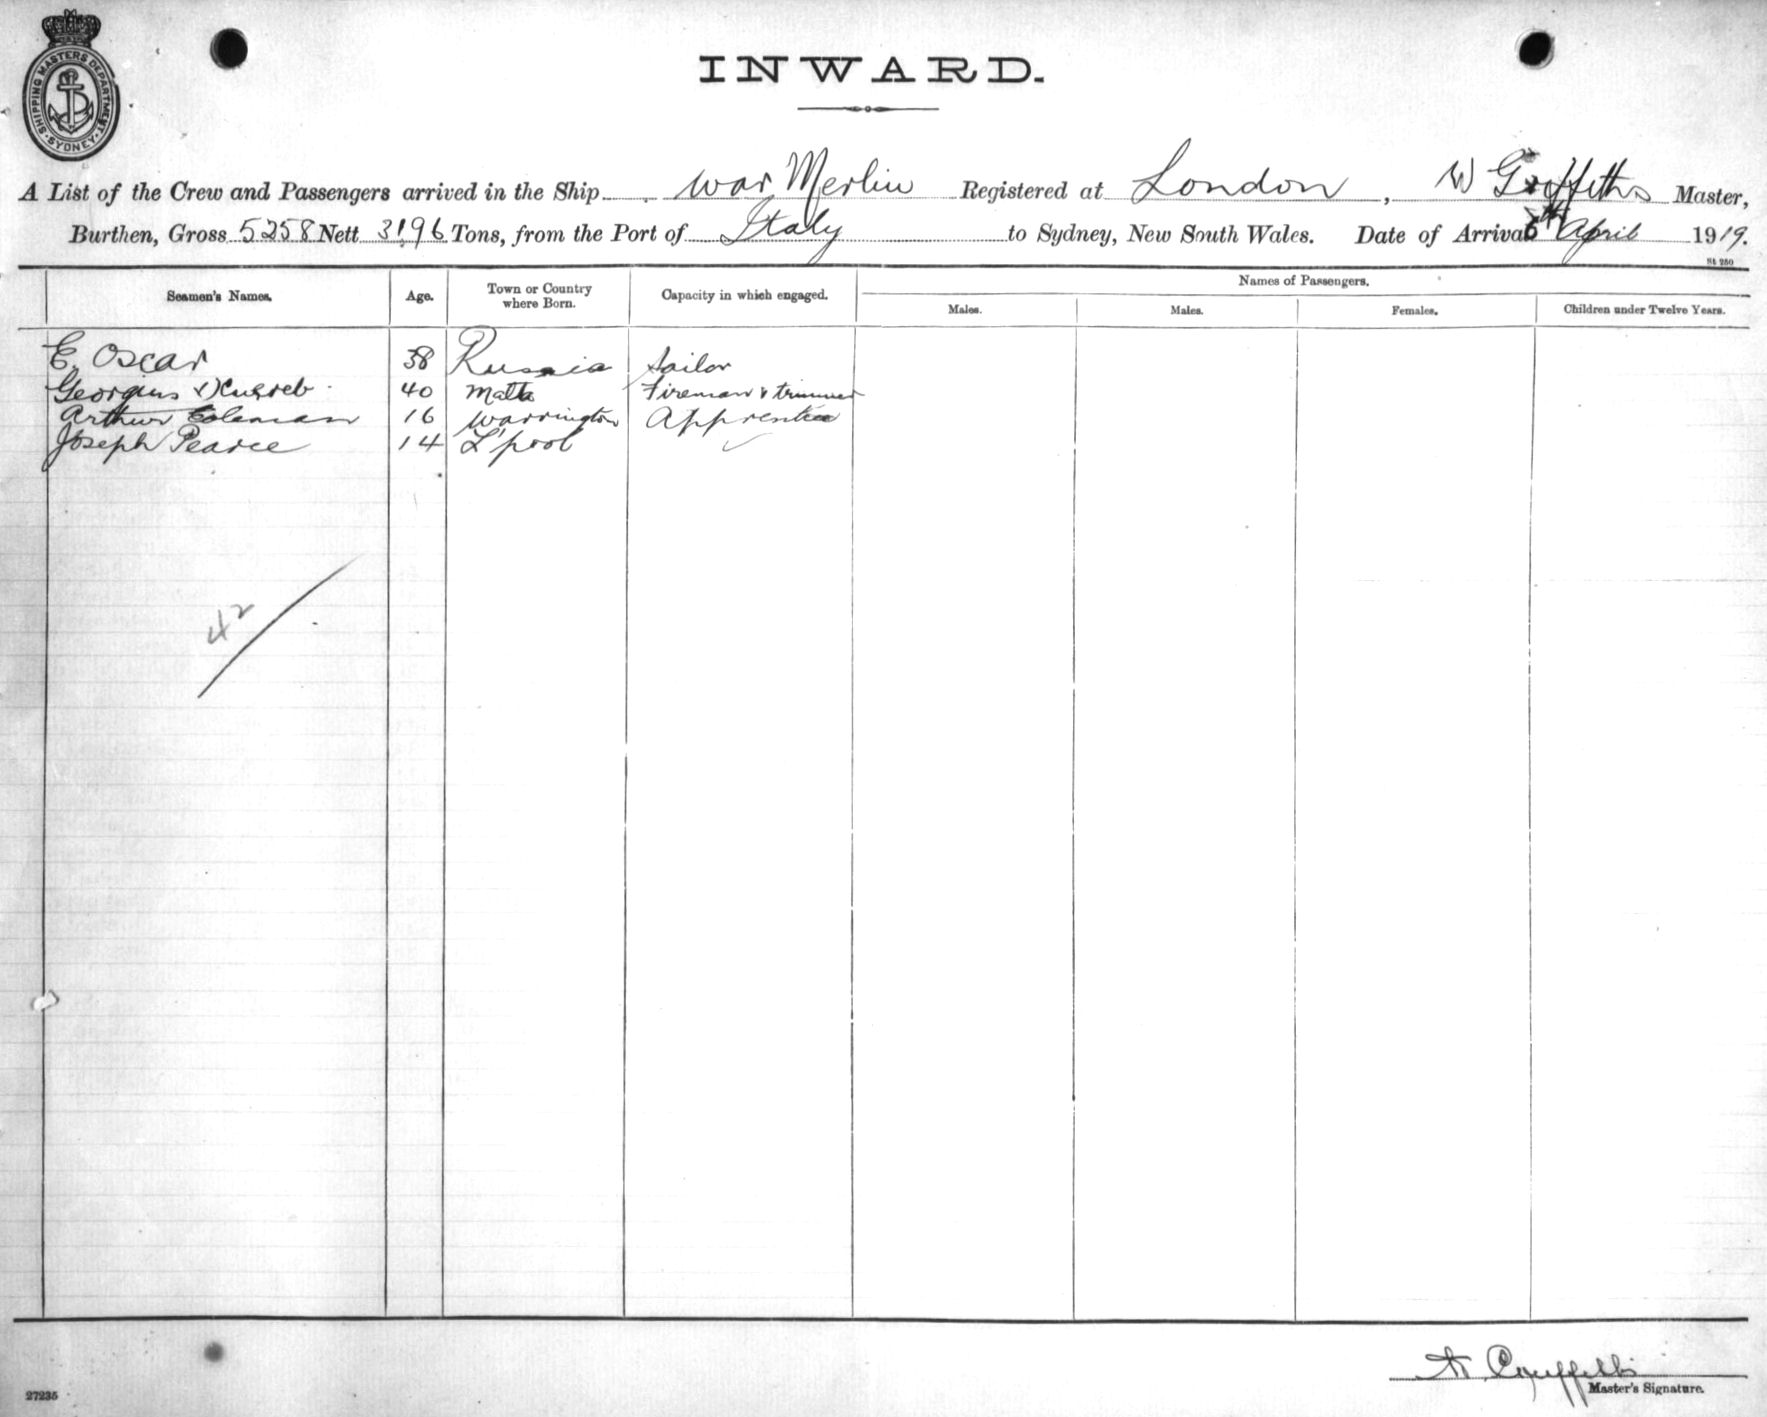 SHIPPING MASTERS DEPARTMENT
SYDNEY
INWARD.
A List of the Crew and Passengers arrived in the Ship War Merlin Registered at London, W Griffiths Master,
Burthen, Gross 5258 Nett 3196 Tons, from the Port of Italy to Sydney, New South Wales. Date of Arrival April 1919.
St 280
Seamen's Names. Age. Town or Country where Born. Capacity in which engaged. Names of Passengers.
Males. Males. Females. Children under Twelve Years.
E. Oscar 38 Russia Sailor
Georgius 40 Malta Fireman & trimmer
Arthur Coleman 16 Warrington Apprentice
Joseph Pearce 14 L'pool
42
W. Griffiths
Master's Signature.
27235